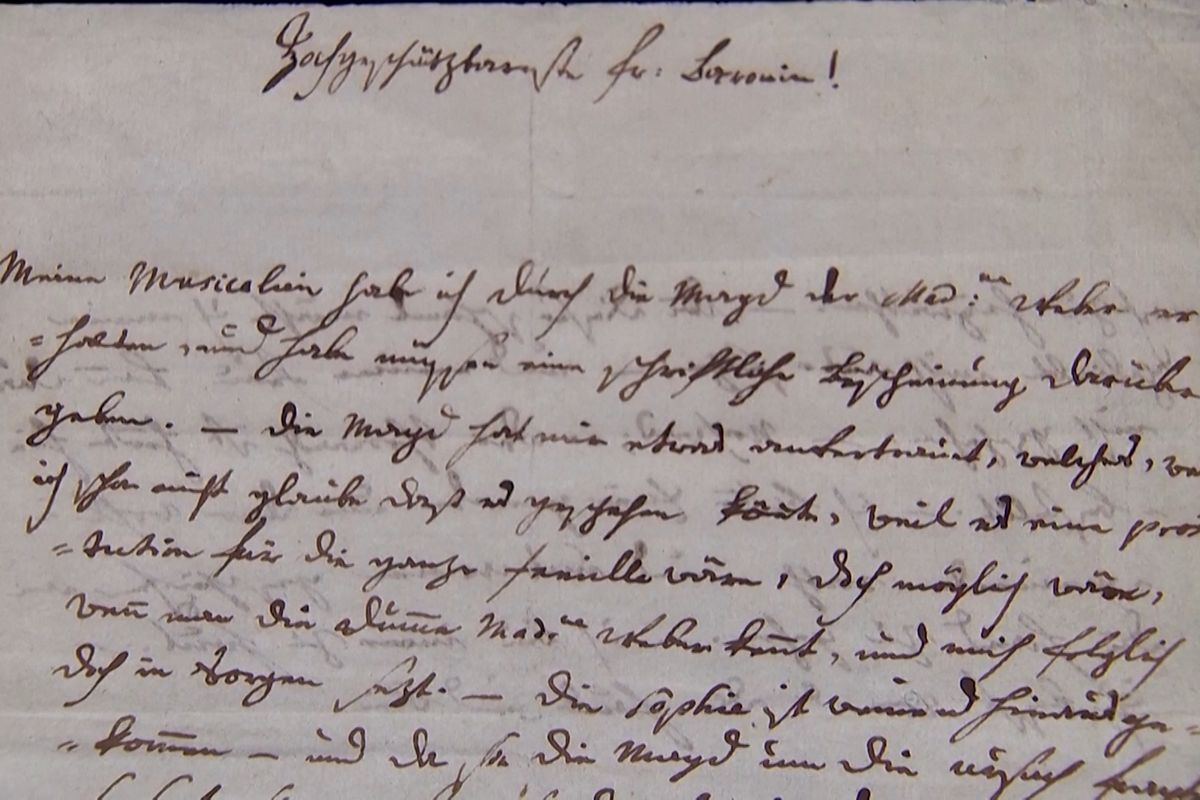 Hochgeschätzbareste fr: Baronin!
Meine Musicalien habe ich durch die Magd der Mad:me Weber er
=halten, und habe müssen eine schriftliche Bescheinung darüber
geben. — die Magd hat mir etwas anvertrauet, welches, we
ich schon nicht glaube daß es geschehen könte, weil es eine pros
=tution für die ganze familie wäre, doch möglich wäre,
wen̄ man die dum̄e Mad:me Weber ken̄t, und mich folglich
doch in Sorgen sezt. — die Sophie ist weinend hinausge=
=kom̄en — und da sie die Magd um die ursach